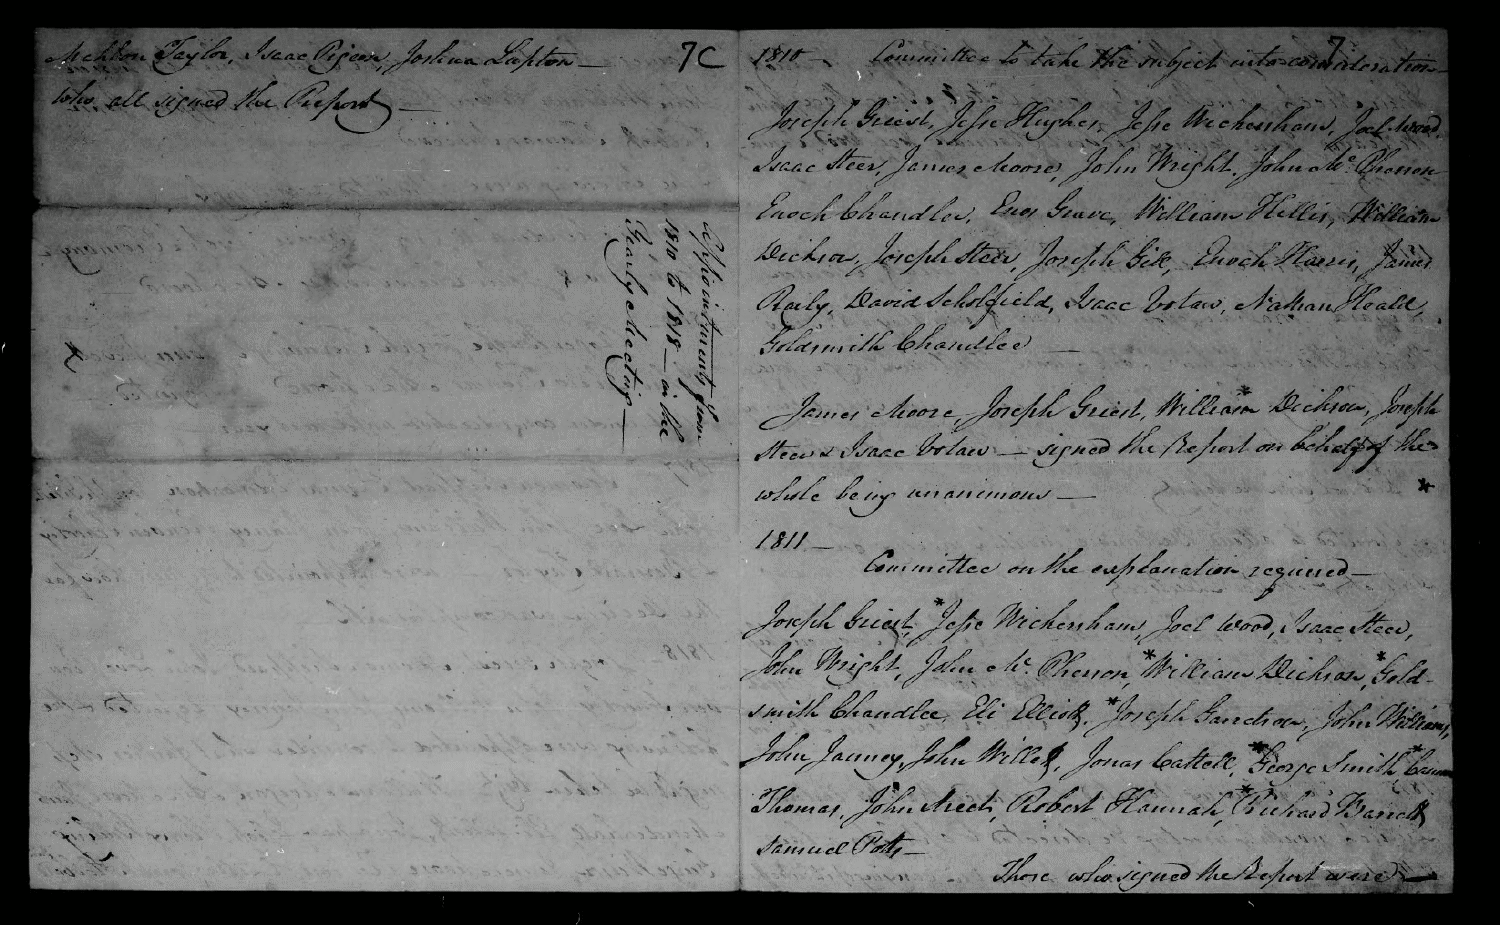 Mahlon Taylor, Isaac Pigeon, Joshua Lupton —
who all signed the Report —
7C
Appointments from
1810 to 1818 — in the
Yearly Meeting —
7
1810 — Committee to take the subject into consideration —
Joseph Griest, Jesse Hughes, Jesse Wickersham, Joel Wood,
Isaac Steer, James Moore, John Wright, John Mc. Pherson
Enoch Chandlee, Enos Grave, William Hillis, William
Dickson, Joseph Steer, Joseph Gill, Enoch Harris, James
Raily, David Scholfield, Isaac Votaw, Nathan Heald,
Goldsmith Chandlee —
James Moore, Joseph Griest, William Dickson, Joseph
Steer & Isaac Votaw — signed the Report on behalf of the
whole being unanimous —
1811 —
Committee on the explanation required —
Joseph Griest, *Jesse Wickersham, Joel Wood, Isaac Steer,
John Wright, John Mc. Pherson, *William Dickson, *Gold-
smith Chandlee, Eli Elliott, *Joseph Garretson, John Williams,
John Janney, John Willets, Jonas Cattell, *George Smith
Thomas, John Street, Robert Hannah, *Richard Barrett
Samuel Potts —
Those who signed the Report were —